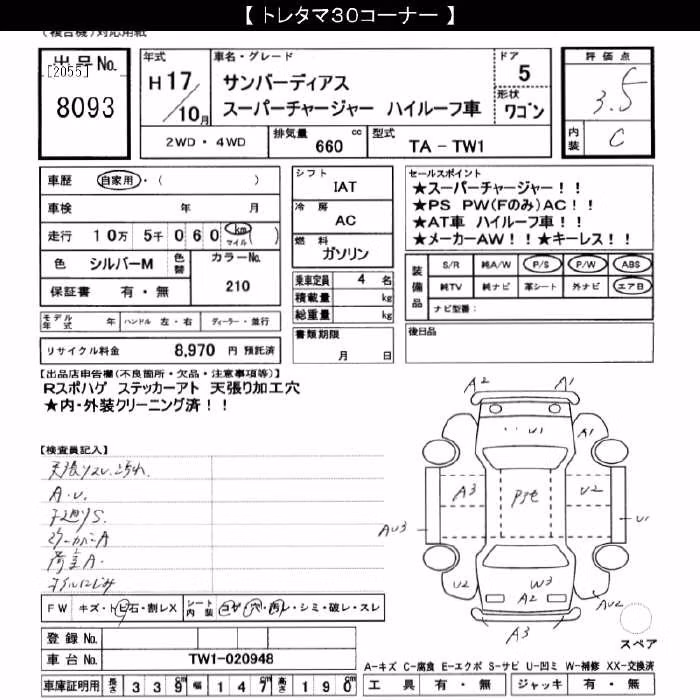 【 トレタマ30コーナー 】
(複合機)対応用紙
出品No.
[2055]
8093
年式
H 17/10月
車名・グレード
サンバーディアス
スーパーチャージャー ハイルーフ車
ドア
5
形状
ワゴン
評価点
3.5
内装
C
2WD・4WD
排気量 660 cc
型式 TA-TW1
車歴 自家用・( )
車検 年 月
走行 10万 5千 0 6 0 km マイル ( )
色 シルバーM 色替 カラーNo. 210
保証書 有・無
シフト
IAT
冷房
AC
燃料
ガソリン
乗車定員 4 名
積載量 kg
総重量 kg
書類期限
月 日
セールスポイント
★スーパーチャージャー!!
★PS PW(Fのみ)AC!!
★AT車 ハイルーフ車!!
★メーカーAW!!★キーレス!!
装備品
S/R 純A/W P/S P/W ABS
純TV 純ナビ 革シート 外ナビ エアB
ナビ型番:
後日品
モデル年式 年 ハンドル 左・右 ディーラー・並行
リサイクル料金 8,970 円 預託済
【出品店申告欄(不良箇所・欠品・注意事項等)】
Rスポハゲ ステッカーアト 天張り加工穴
★内・外装クリーニング済!!
【検査員記入】
A.U.
FW キズ・トビ石・割レX
シート内装 コゲ・穴・汚レ・シミ・破レ・スレ
登録No.
車台No. TW1-020948
車庫証明用 長さ 339cm 幅 147cm 高さ 190cm
A2 A1
U1 A1
A3 U2
AU3 U1
U2 W3 A2 AU2
A3
スペア
A-キズ C-腐食 E-エクボ S-サビ U-凹ミ W-補修 XX-交換済
工具 有・無 ジャッキ 有・無